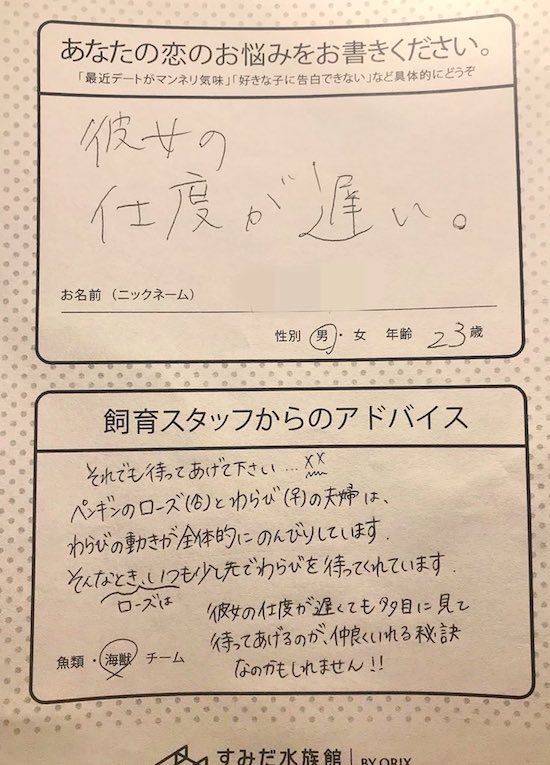 あなたの恋のお悩みをお書きください。
「最近デートがマンネリ気味」「好きな子に告白できない」など具体的にどうぞ
彼女の
仕度が遅い。
お名前（ニックネーム）
性別 男・女 年齢 23歳
飼育スタッフからのアドバイス
それでも待ってあげて下さい…××
ペンギンのローズ(♂)とわらび(♀)の夫婦は、
わらびの動きが全体的にのんびりしています.
そんなとき、いつも少し先でわらびを待ってくれています.
ローズは
彼女の仕度が遅くても多目に見て
待ってあげるのが、仲良くいれる秘訣
なのかもしれません!!
魚類・海獣 チーム
すみだ水族館 | BY ORIX